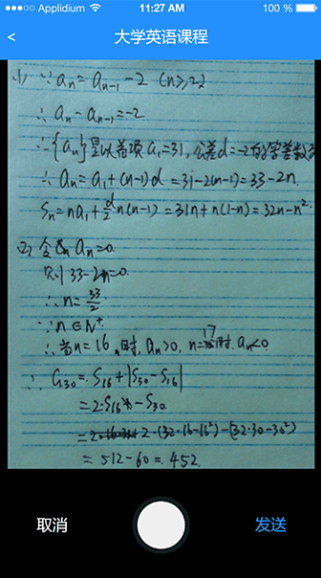 Applidium 11:27 AM 100 %
< 大学英语课程
(1) ∵ aₙ = aₙ₋₁ - 2 (n≥2)
∴ aₙ - aₙ₋₁ = -2
∴ {aₙ}是以首项a₁=31, 公差d=-2的等差数
∴ aₙ = a₁+(n-1)d = 31-2(n-1) = 33-2n.
Sₙ = na₁ + d/2 n(n-1) = 31n + n(1-n) = 32n - n².
(2) 令 aₙ=0.
则 33-2n=0.
∴ n = 33/2
∵ n∈N⁺
∴ 当n=16时, aₙ>0, n=17时, aₙ<0.
∴ G₃₀ = S₁₆ + |S₃₀ - S₁₆|
= 2·S₁₆ - S₃₀
= 2·(32·16-16²) - (32·30-30²)
= 512 - 60 = 452.
取消 发送